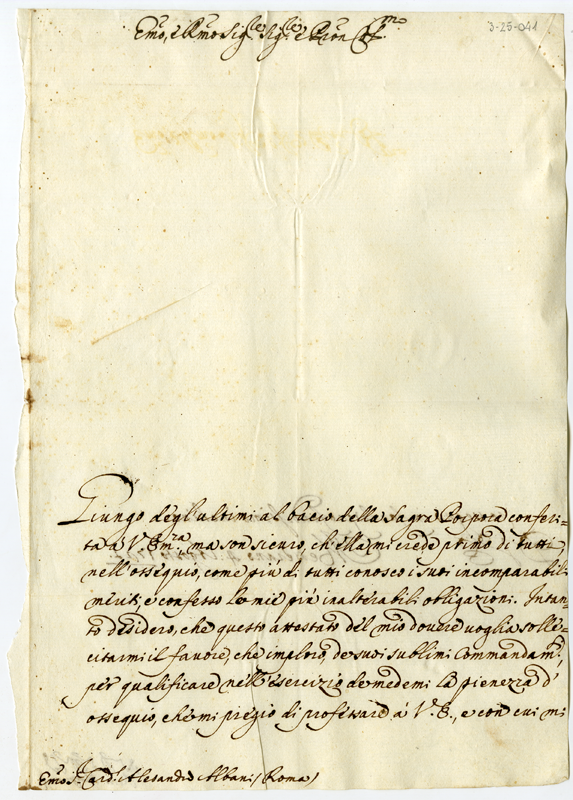 3-25-041
Emo, e Rmo Sigre Sigre e Pron Colmo
Giungo degl'ultimi al bacio della Sagra Porpora conferi=
ta à V. Emza, ma son sicuro, ch'ella mi crede primo di tutti
nell'ossequio, come più di tutti conosco i suoi incomparabili
meriti, e confesso le mie più inalterabili obligazioni. Intan=
to desidero, che questo attestato del mio dovere voglia solle=
citarmi il favore, che imploro, de suoi sublimi Commandamti,
per qualificare nell'esercizio de medemi la pienezza d'
ossequio, che mi pregio di professare à V. E., e con cui mi
Emo Sr Card. Alesandro Albani (Roma)